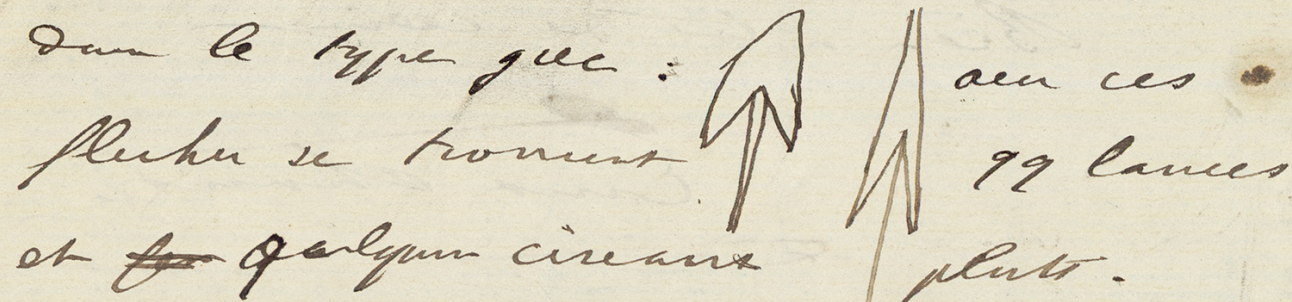 dans le type grec : avec ces
flèches se trouvent qq lances
et quelques ciseaux plats.